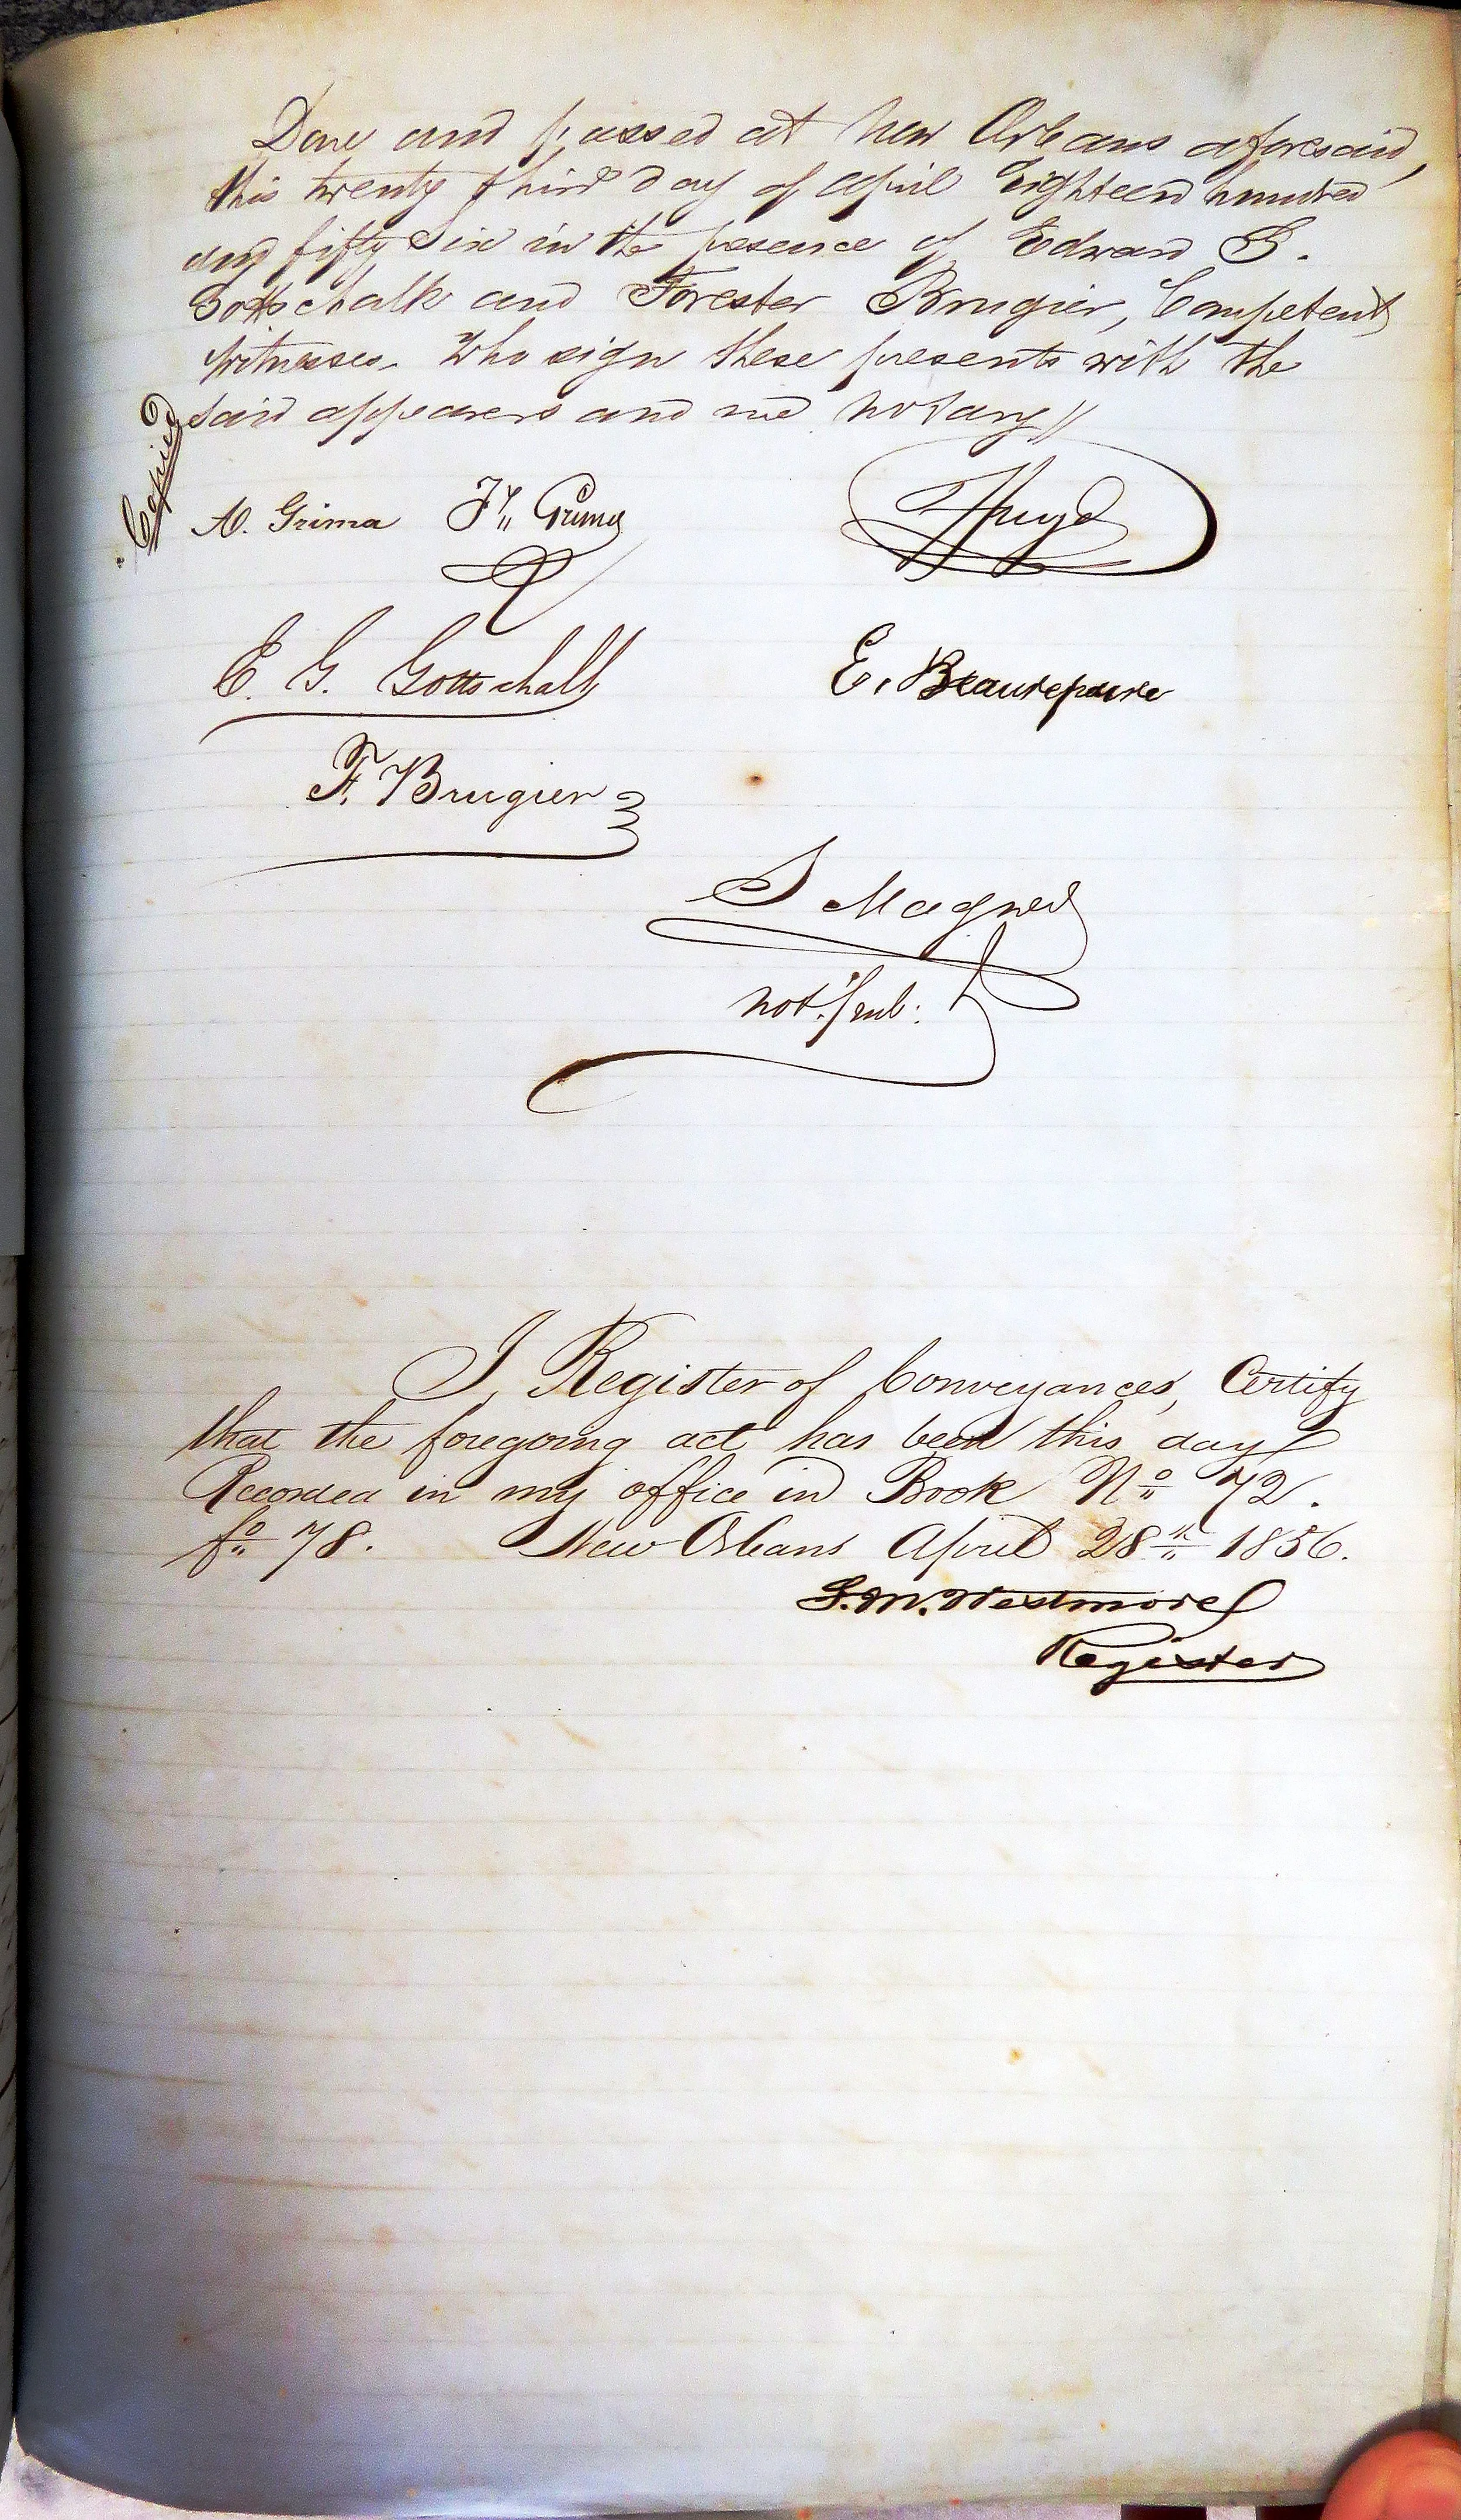 Done and passed at New Orleans aforesaid,
this twenty third day of April Eighteen hundred
and fifty Six in the presence of Edward G.
Gottschalk and Forester Brugier, Competent
witnesses. Who sign these presents with the
said appearers and me notary //
Copied
A. Grima
E. G. Gottschalk
E. Beaurepaire
F. Brugier
S Magner
not. pub.
I, Register of Conveyances, Certify
that the foregoing act has been this day
Recorded in my office in Book No 72.
fo 78. New Orleans April 28th 1856.
S. M. Westmore
Register